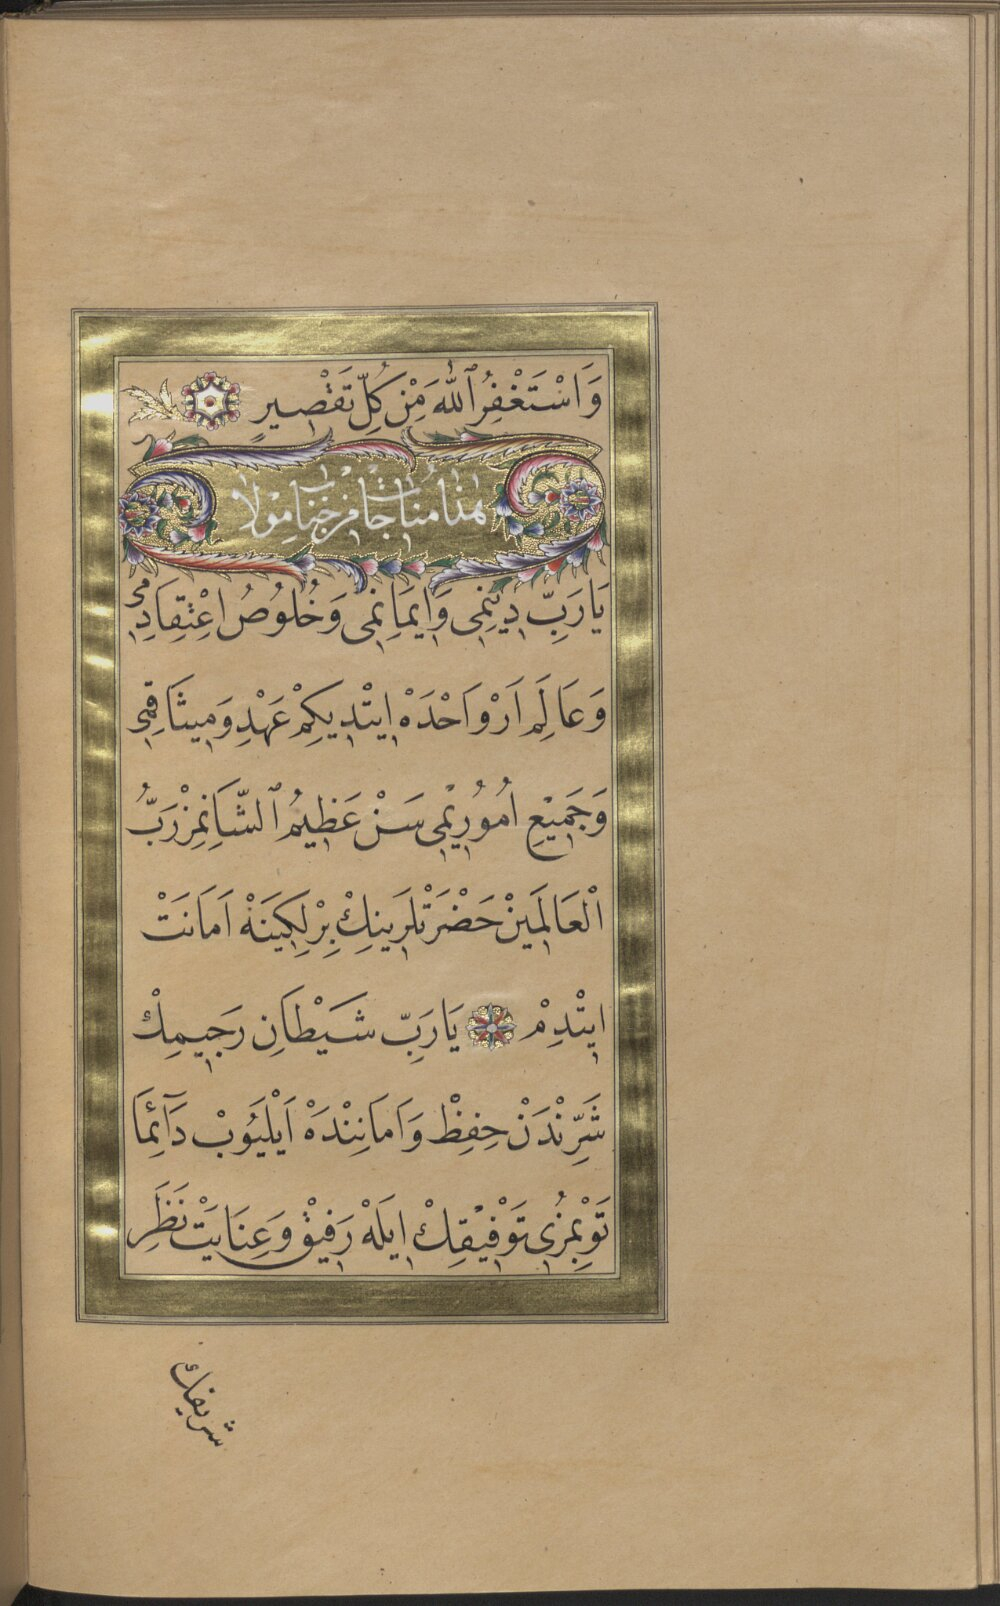 وَاَسْتَغْفِرُ ٱللّٰهَ مِنْ كُلِّ تَقْصِيرٍ
هٰذَا مُنَاجَات مِنْ جَنَابِ مَوْلَا
يَارَبِّ دِينِمِى وَاِيمَانِمِى وَخُلُوصُ اِعْتِقَادِمِى
وَعَالَمِ اَرْوَاحْدَهْ اِيتْدِيكِمْ عَهْدِ وَمِيثَاقِمِى
وَجَمِيْعِ اُمُورِيْمِى سَنْ عَظِيمُ ٱلشَّانِمِزْ رَبُّ
الْعَالَمِينْ حَضْرَتْلَرِينِكْ بِرْلِكِينَهْ اَمَانَتْ
اِيتْدِمْ يَارَبِّ شَيْطَانِ رَجِيمِكْ
شَرِّنْدَنْ حِفِظْ وَاَمَانِنْدَهْ اَيْلَيُوبْ دَآئِمَا
تَوْبَمِزِى تَوْفِيْقِكْ اِيلَهْ رَفِيْقْ وَعِنَايَتْ نَظَرِ
شريفك